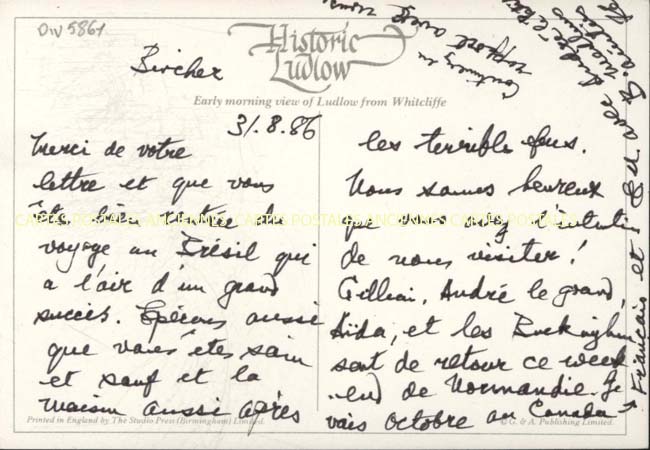 DW 5861
Historic
Ludlow
Bircher
Early morning view of Ludlow from Whitcliffe
31.8.86
Merci de votre
lettre et que vous
êtes bien rentrés du
voyage au Brésil qui
a l'air d'un grand
succès. Espérons aussi
que vous êtes sain
et sauf et la
maison aussi après
les terribles feus.
Nous sommes heureux
que vous avez l'intention
de nous visiter!
Gillian, André le grand,
Aïda, et les Buckingham
sont de retour ce week
-end de Normandie. Je
vais octobre au Canada →
Français et avec
rapport avec
CARTES POSTALES ANCIENNES CARTES POSTALES ANCIENNES CARTES POSTALES
Printed in England by The Studio Press (Birmingham) Limited.
© G. & A. Publishing Limited.